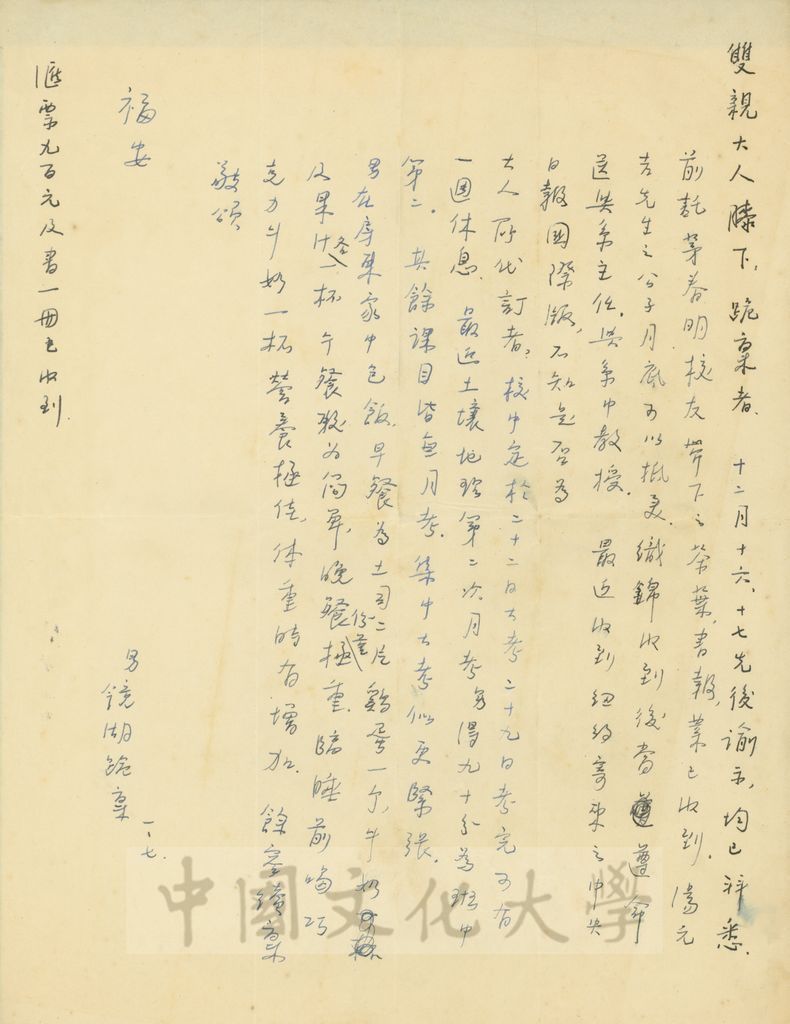 雙親大人膝下，跪稟者，十二月十六、十七先後諭示，均已拜悉。
前託茅春明校友帶下之茶葉，書報，業已收到。湯元
吉先生之公子月底可以抵美，織錦收到後當遵命
送與系主任，與系中教授。最近收到紐約寄來之中央
日報國際版，不知是否為
大人所代訂者，校中定於二十二日大考二十九日考完可有
一週休息。最近土壤地理第二次月考男得九十分為班中
第二。其餘課目皆無月考，集中大考似更緊張。
男在房東家中包飯，早餐為土司二片雞蛋一个，牛奶
及果汁各一杯，午餐較為簡單，晚餐份量極重。臨睡前喝巧
克力牛奶一杯，營養極佳，体重時有增加。餘容續稟
敬頌
福安
男鏡湖跪稟
一、七.
滙票九百元及書一冊已收到.
中國文化大學